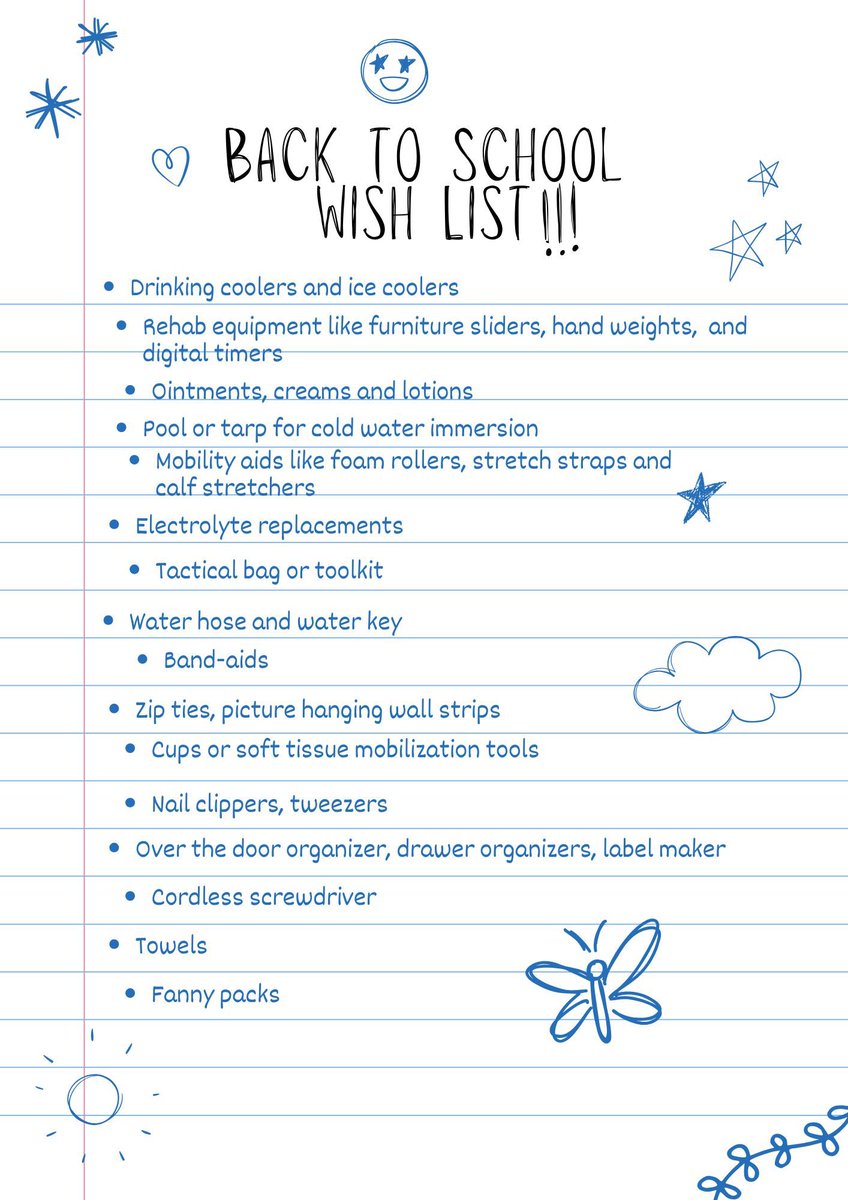 BACK TO SCHOOL
WISH LIST!!!
• Drinking coolers and ice coolers
• Rehab equipment like furniture sliders, hand weights, and
digital timers
• Ointments, creams and lotions
• Pool or tarp for cold water immersion
• Mobility aids like foam rollers, stretch straps and
calf stretchers
• Electrolyte replacements
• Tactical bag or toolkit
• Water hose and water key
• Band-aids
• Zip ties, picture hanging wall strips
• Cups or soft tissue mobilization tools
• Nail clippers, tweezers
• Over the door organizer, drawer organizers, label maker
• Cordless screwdriver
• Towels
• Fanny packs